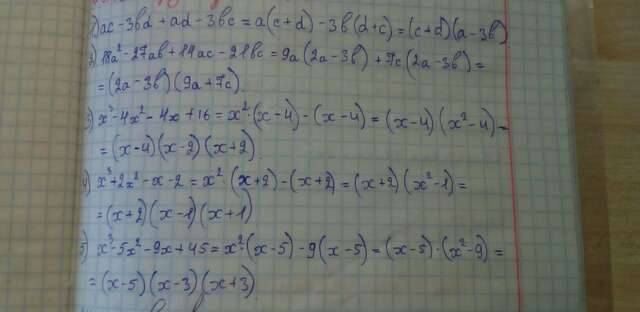 1) ac - 3bd + ad - 3bc = a(c+d) - 3b(d+c) = (c+d)(a-3b)
2) 18a² - 27ab + 14ac - 21bc = 9a(2a-3b) + 7c(2a-3b) =
= (2a-3b)(9a+7c).
3) x³ - 4x² - 4x + 16 = x²·(x-4) - (x-4) = (x-4)(x²-4) =
= (x-4)(x-2)(x+2).
4) x³ + 2x² - x - 2 = x²·(x+2) - (x+2) = (x+2)(x²-1) =
= (x+2)(x-1)(x+1)
5) x³ - 5x² - 9x + 45 = x²·(x-5) - 9(x-5) = (x-5)·(x²-9) =
= (x-5)(x-3)(x+3)